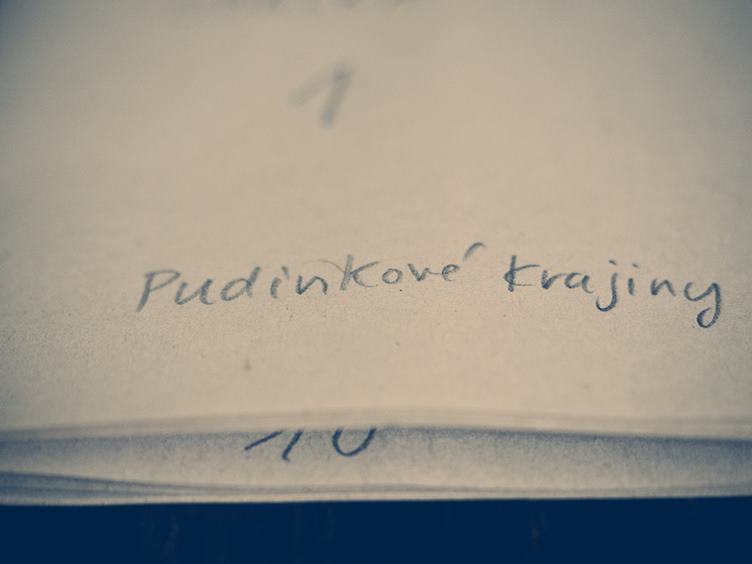 1
Pudinkové krajiny
10